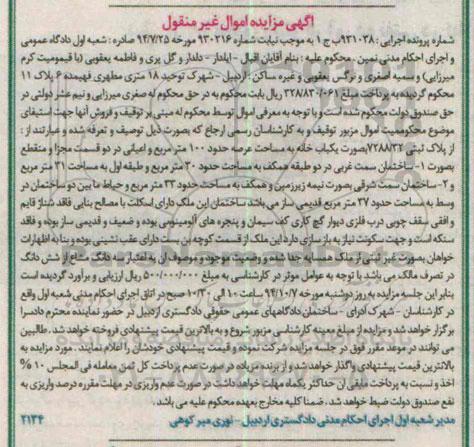 آگهی مزایده اموال غیر منقول
شماره پرونده اجرایی : ۹۳۱۰۳۸ ب ج ۱ به موجب نیابت شماره ۹۳۰۲۱۶ مورخه ۹۴/۷/۲۵ صادره : شعبه اول دادگاه عمومی
و اجرای احکام مدنی نمین . محکوم علیه : بنام آقایان اقبال - ایلدار - دلدار و گل پری و فاطمه یعقوبی (با قیمومیت کرم
میرزایی) و سمیه اصغری و نرگس یعقوبی و غیره ساکن : اردبیل - شهرک توحید ۱۸ متری مطهری فهیمده ۶ پلاک ۱۱
محکوم گردیده به پرداخت مبلغ ۳۲۸۸۳۰/۰۶۱ ریال بابت محکوم به در حق محکوم له صفری میرزایی و نیم عشر دولتی در
حق صندوق دولت محکوم شده است و با توجه به معرفی اموال توسط محکوم له مبنی بر توقیف و فروش آنها جهت استیفای
موضوع محکومیت اموال مزبور توقیف و به کارشناسان رسمی ارجاع که بصورت ذیل توصیف و تعرفه شده و عبارتند از :
از پلاک ثبتی ۷۲۸۸۳۲ بصورت یکباب خانه به مساحت عرصه حدود ۱۰۰ متر مربع و اعیانی در دو قسمت مجزا و منقطع
بصورت ۱- ساختمان سمت غربی در دو طبقه همکف به مساحت حدود ۳۰ متر مربع و طبقه اول به مساحت ۳۱ متر مربع
و ۲- ساختمان سمت شرقی بصورت نیمه زیرزمین و همکف به مساحت حدود ۳۳ متر مربع و حیاط ما بین دو ساختمان در
وسط به مساحت حدود ۳۷ متر مربع قدیمی ساز می باشد ساختمان این ملک دارای اسکلت با مصالح بنایی فاقد شناژ قایم
و افقی سقف چوبی درب فلزی دیوار گچ کاری کف سیمان و پنجره های آلومینیومی بوده و ضعیف و قدیمی ساز بوده و فاقد
سنکه است و جهت سکونت نیاز به باز سازی دارد این ملک از قسمت کوچه بن بست دارای عقب نشینی بوده و بنا به اظهارات
خواهان بصورت غیر ثبتی از ملک همسایه جدا شده و وضعیت موجود و موصوف آن به اعتبار سه دانگ مشاع از شش دانگ
در تصرف مالک می باشد با توجه به عوامل موثر در کارشناسی به مبلغ ۵۰۰/۰۰۰/۰۰۰ ریال ارزیابی و برآورد گردیده است
بنابر این جلسه مزایده به روز دوشنبه مورخه ۹۴/۱۰/۷ ساعت ۱۰ الی ۱۰/۳۰ صبح در اتاق اجرای احکام مدنی شعبه اول واقع
در کارشناسان - شهرک آدرای - ساختمان دادگاههای عمومی حقوقی دادگستری اردبیل در حضور نماینده محترم دادسرا
برگزار خواهد شد و مزایده از مبلغ معینه کارشناسی مزبور شروع و به بالاترین قیمت پیشنهادی فروخته خواهد شد . طالبین
می توانند در موعد مقرر فوق در جلسه مزایده شرکت نموده و قیمت پیشنهادی خودشان را اعلام نمایند . مورد مزایده به
بالاترین قیمت پیشنهادی واگذار خواهد شد و از برنده مزایده در صورت عدم پرداخت کل ثمن معامله فی المجلس ۱۰ %
اخذ و نسبت به پرداخت مابقی آن حداکثر یکماه مهلت خواهد داشت در صورت عدم واریزی در مهلت مقرره درصد واریزی به
نفع صندوق دولت ضبط خواهد شد . ضمنا کلیه مخارج بعهده محکوم علیه می باشد .
مدیر شعبه اول اجرای احکام مدنی دادگستری اردبیل - نوری میر کوهی
۲۱۳۴